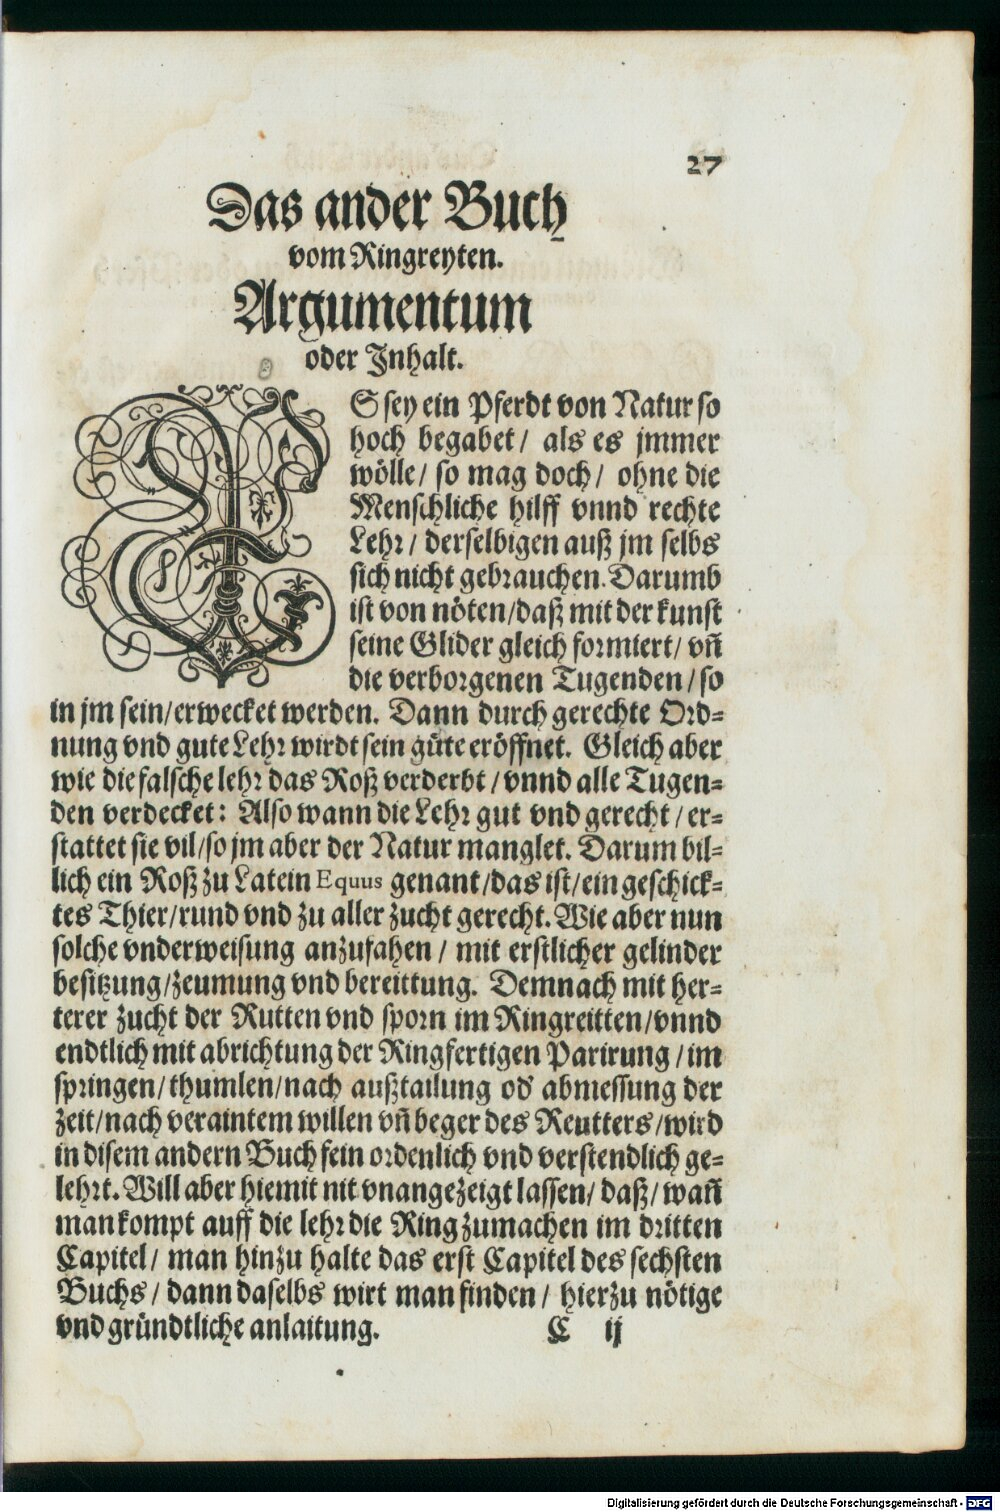 27
Das ander Buch
vom Ringreyten.
Argumentum
oder Inhalt.
ES sey ein Pferdt von Natur so
hoch begabet / als es jmmer
wölle / so mag doch / ohne die
Menschliche hilff vnnd rechte
Lehr / derselbigen auß jm selbs
sich nicht gebrauchen. Darumb
ist von nöten / daß mit der kunst
seine Glider gleich formiert / vñ
die verborgenen Tugenden / so
in jm sein / erwecket werden. Dann durch gerechte Ord⸗
nung vnd gute Lehr wirdt sein güte eröffnet. Gleich aber
wie die falsche lehr das Roß verderbt / vnnd alle Tugen⸗
den verdecket: Also wann die Lehr gut vnd gerecht / er⸗
stattet sie vil / so jm aber der Natur manglet. Darum bil⸗
lich ein Roß zu Latein Equus genant / das ist / ein geschick⸗
tes Thier / rund vnd zu aller zucht gerecht. Wie aber nun
solche vnderweisung anzufahen / mit erstlicher gelinder
besitzung / zeumung vnd bereittung. Demnach mit her⸗
terer zucht der Rutten vnd sporn im Ringreitten / vnnd
endtlich mit abrichtung der Ringfertigen Parirung / im
springen / thumlen / nach außtailung od' abmessung der
zeit / nach veraintem willen vñ beger des Reutters / wird
in disem andern Buch fein ordenlich vnd verstendlich ge⸗
lehrt. Will aber hiemit nit vnangezeigt lassen / daß / wañ
man kompt auff die lehr die Ring zumachen im dritten
Capitel / man hinzu halte das erst Capitel des sechsten
Buchs / dann daselbs wirt man finden / hierzu nötige
vnd gründtliche anlaitung.
C ij
Digitalisierung gefördert durch die Deutsche Forschungsgemeinschaft - DFG